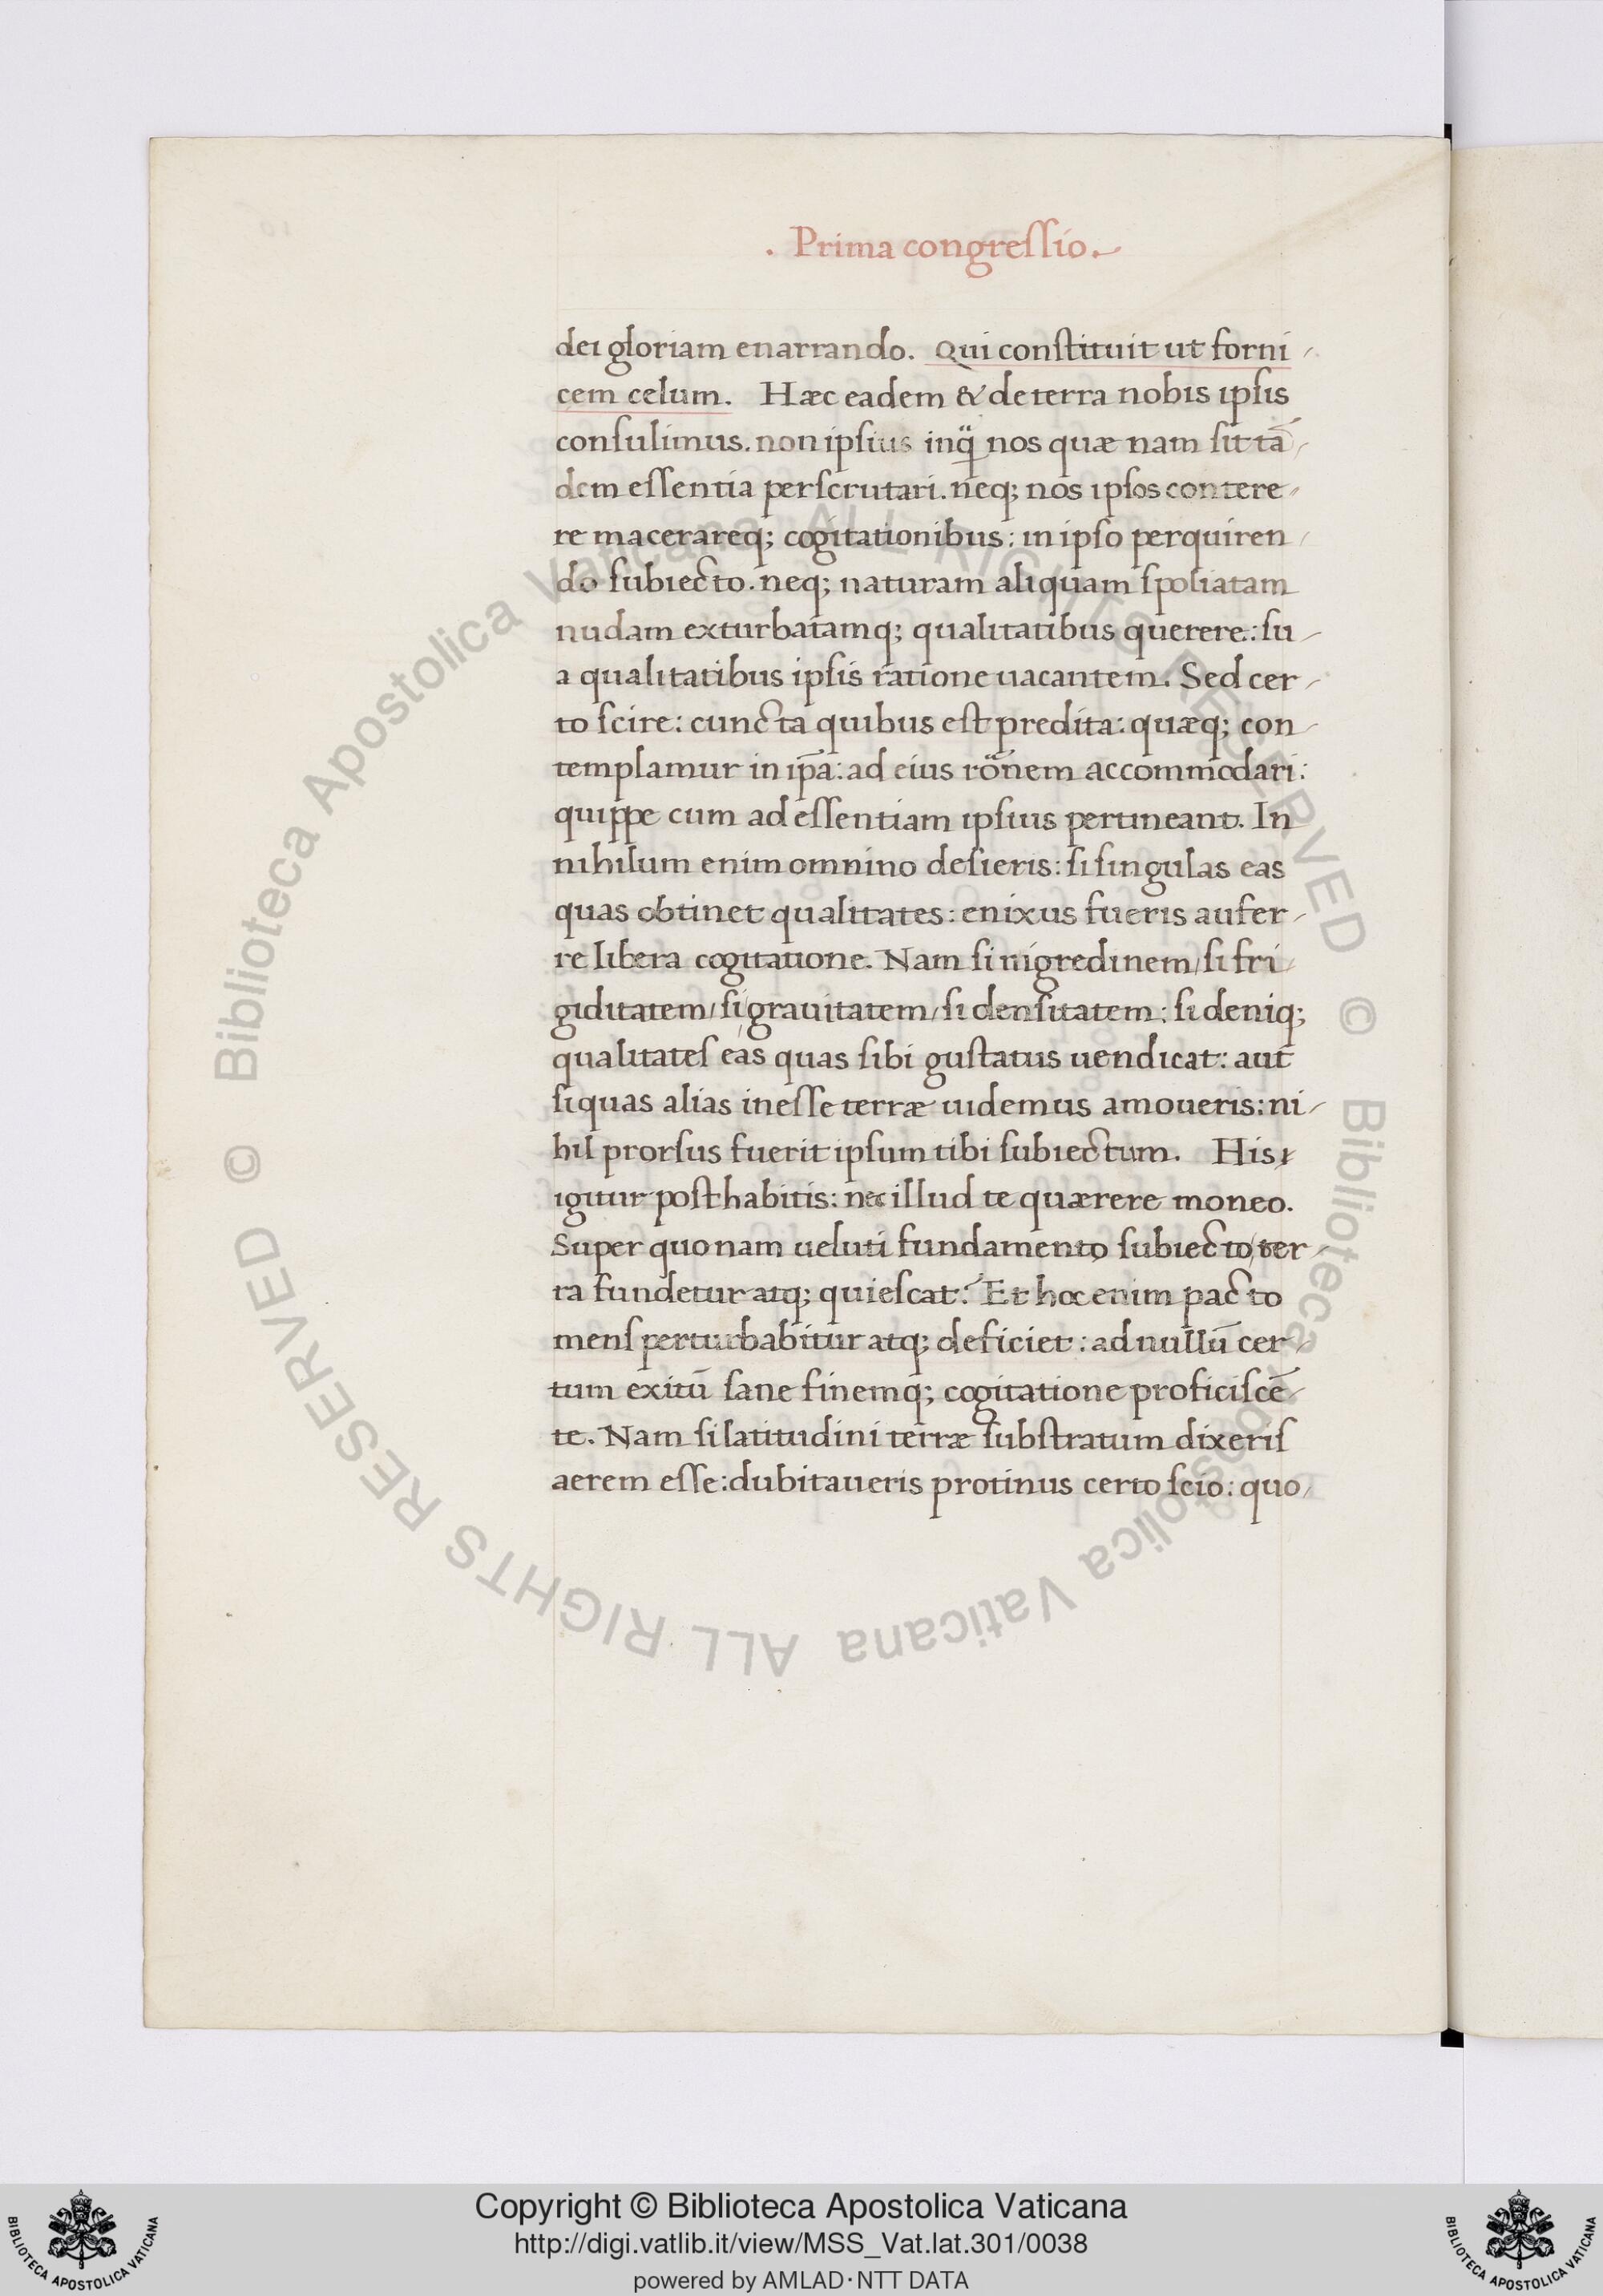 . Prima congreſſio.
dei gloriam enarrando. Qui conſtituit ut forni
cem celum. Hæc eadem & de terra nobis ipſis
conſulimus. non ipſius inq̈ nos quæ nam ſit tā
dem eſſentia perſcrutari. neq; nos ipſos contere
re macerareq; cogitationibus: in ipſo perquiren
do ſubiecto. neq; naturam aliquam ſpoliatam
nudam exturbatamq; qualitatibus querere: ſu
a qualitatibus ipſis ratione uacantem. Sed cer
to ſcire: cuncta quibus eſt predita: quæq; con
templamur in ip̄a: ad eius rōnem accommodari:
quippe cum ad eſſentiam ipſius pertineant. In
nihilum enim omnino deſieris: ſi ſingulas eas
quas obtinet qualitates: enixus fueris aufer
re libera cogitatione. Nam ſi nigredinem/ ſi fri
giditatem/ ſi/ grauitatem/ ſi denſitatem: ſi deniq;
qualitateſ eas quas ſibi guſtatus uendicat: aut
ſiquas alias ineſſe terræ uidemus amoueris: ni
hil prorſus fuerit ipſum tibi ſubiectum. His
igitur poſthabitis: nec illud te quærere moneo.
Super quonam ueluti fundamento ſubiecto/ ter
ra fundetur atq; quieſcat? Et hoc enim pacto
menſ perturbabitur atq; deficiet: ad nullū cer
tum exitū ſane finemq; cogitatione proficiſcē
te. Nam ſi latitudini terræ ſubſtratum dixeriſ
aerem eſſe: dubitaueris protinus certo ſcio: quo
© Biblioteca Apostolica Vaticana ALL RIGHTS RESERVED
© Biblioteca Apostolica Vaticana ALL RIGHTS RESERVED
Copyright © Biblioteca Apostolica Vaticana
http://digi.vatlib.it/view/MSS_Vat.lat.301/0038
powered by AMLAD·NTT DATA
BIBLIOTECA APOSTOLICA VATICANA
BIBLIOTECA APOSTOLICA VATICANA